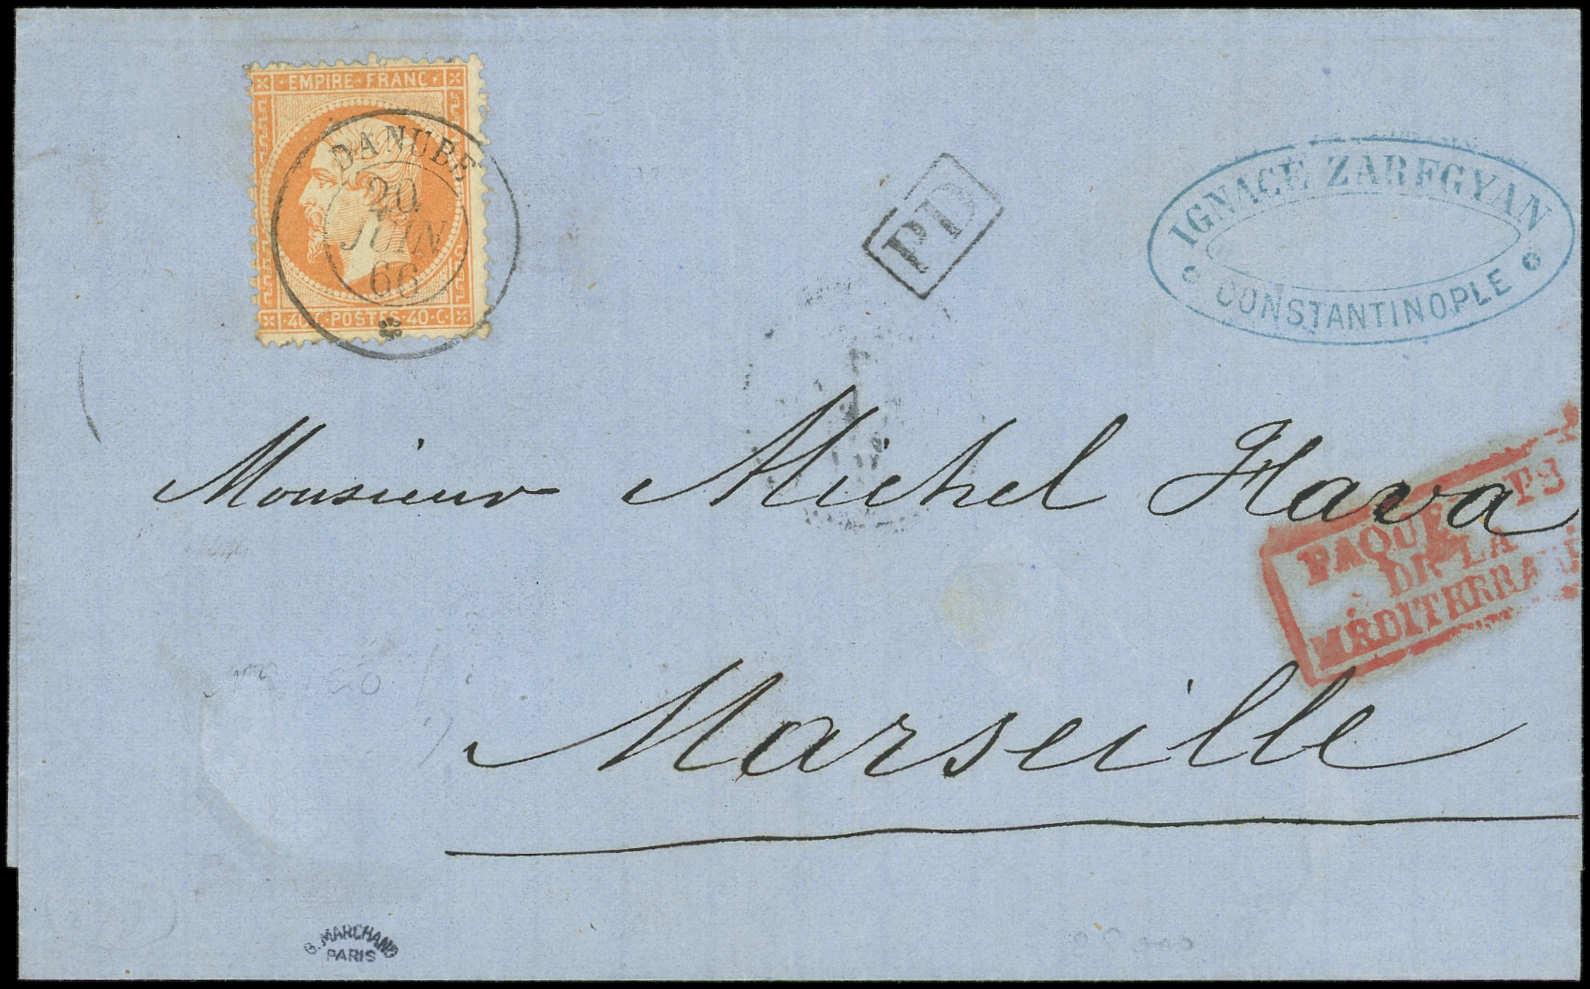 EMPIRE FRANC
DANUBE
20
JUIN
66
40 C POSTES 40 C
PD
IGNACE ZAREGYAN
CONSTANTINOPLE
Monsieur Michel Hava
DE LA
Marseille
G. MARCHAND
PARIS